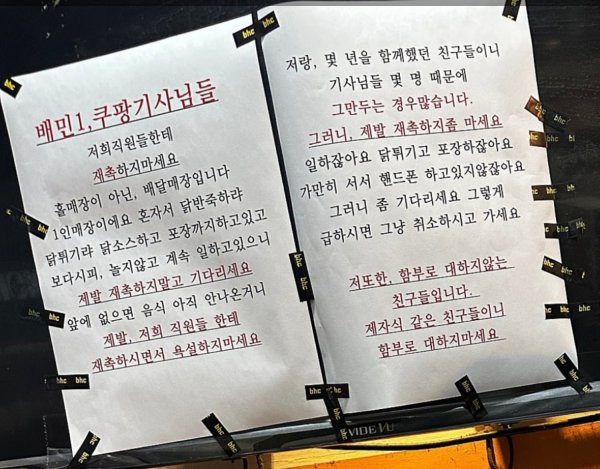 배민1,쿠팡기사님들
저희직원들한테
재촉하지마세요
홀매장이 아닌, 배달매장입니다
1인매장이에요 혼자서 닭반죽하랴
닭튀기랴 닭소스하고 포장까지하고있고
보다시피, 놀지않고 계속 일하고있으니
제발 재촉하지말고 기다리세요
앞에 없으면 음식 아직 안나온거니
제발, 저희 직원들 한테
재촉하시면서 욕설하지마세요
저랑, 몇 년을 함께했던 친구들이니
기사님들 몇 명 때문에
그만두는 경우많습니다.
그러니, 제발 재촉하지좀 마세요
일하잖아요 닭튀기고 포장하잖아요
가만히 서서 핸드폰 하고있지않잖아요
그러니 좀 기다리세요 그렇게
급하시면 그냥 취소하시고 가세요
저또한, 함부로 대하지않는
친구들입니다.
제자식 같은 친구들이니
함부로 대하지마세요
bhc
bhc
bhc
bhc
bhc
bhc
bhc
bhc
bhc
bhc
VIDEVU